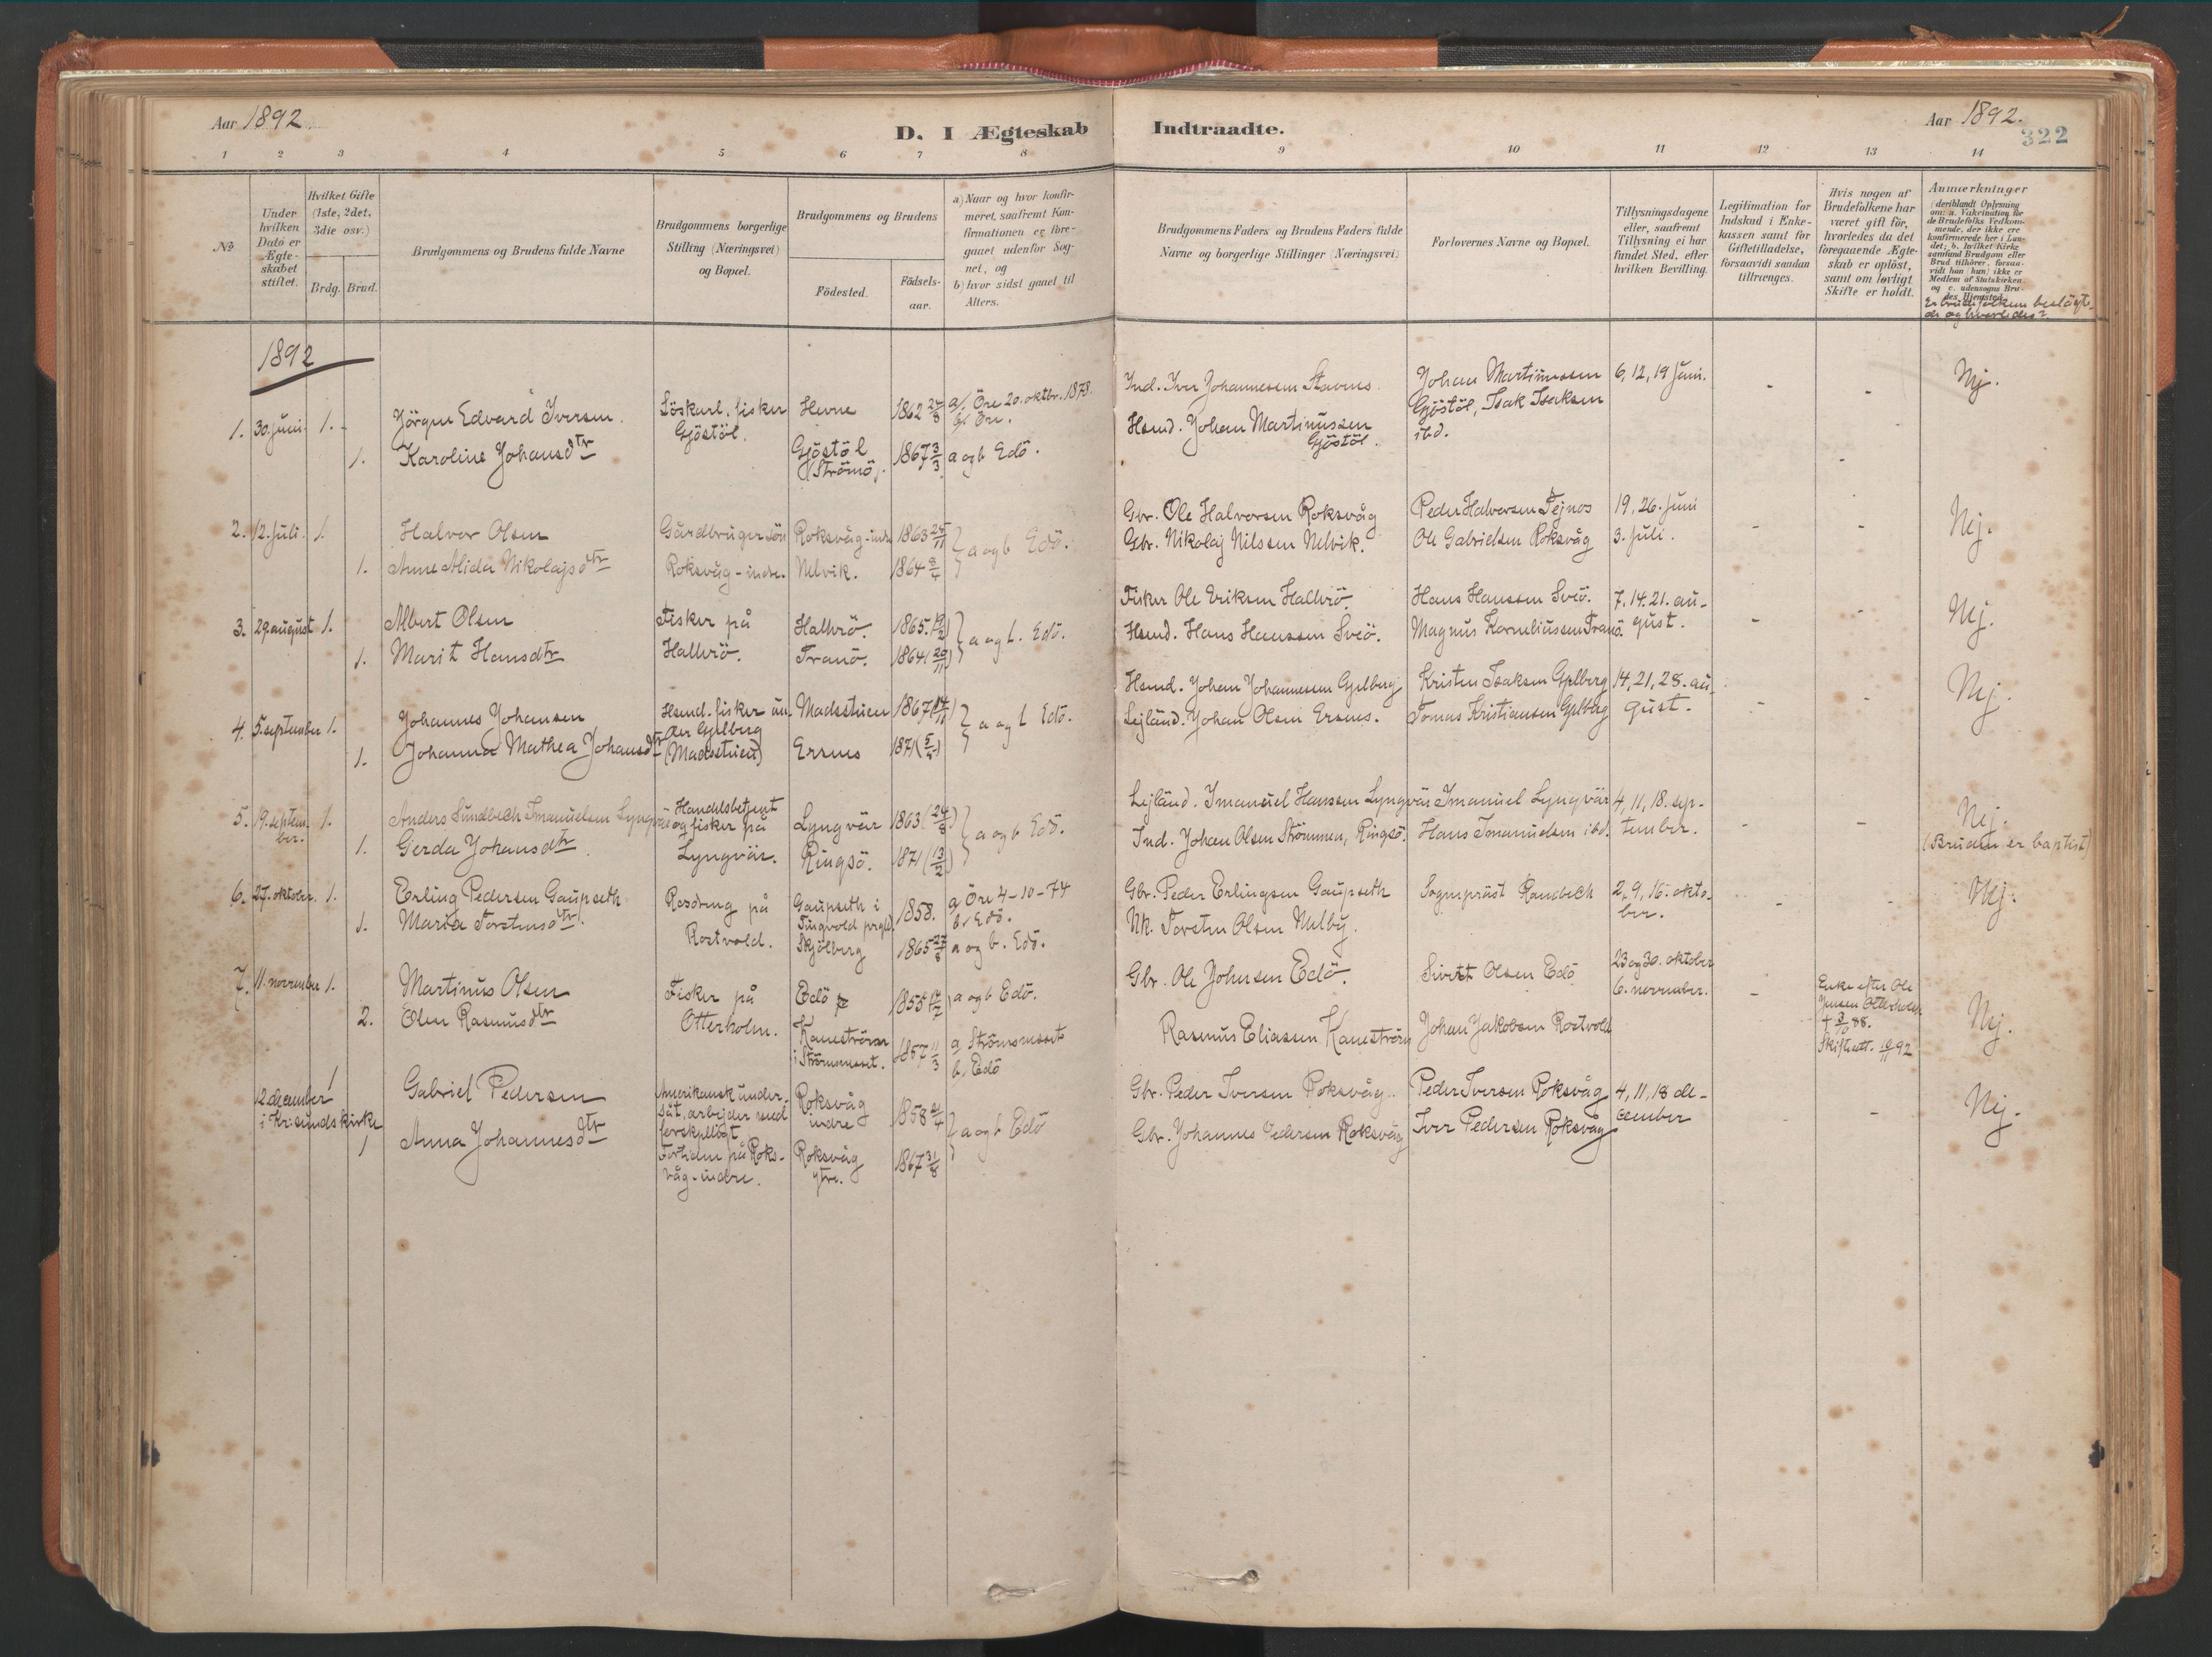 Aar 1892.
D. I Ægteskab
Indtraadte.
Aar 1892.
322
1 2 3 4 5 6 7 8
9 10 11 12 13 14
No
Under hvilken Dato er Ægteskabet stiftet.
Hvilket Gifte (1ste, 2det, 3die osv.)
Brdg. Brud.
Brudgommens og Brudens fulde Navne
Brudgommens borgerlige Stilling (Næringsvei) og Bopæl.
Brudgommens og Brudens
Födested.
Födselsaar.
a) Naar og hvor konfirmeret, saafremt Konfirmationen er foregaaet udenfor Sognet, og
b) hvor sidst gaaet til Alters.
Brudgommens Faders og Brudens Faders fulde Navne og borgerlige Stillinger (Næringsvei)
Forlovernes Navne og Bopæl.
Tillysningsdagene eller, saafremt Tillysning ei har fundet Sted, efter hvilken Bevilling.
Legitimation for Indskud i Enkekassen samt for Giftetilladelse, forsaavidt saadan tiltrænges.
Hvis nogen af Brudefolkene har været gift för, hvorledes da det foregaaende Ægteskab er oplöst, samt om lovligt Skifte er holdt.
Anmærkninger (deriblandt Oplysning om: a. Vakcination for de Brudefolks Vedkommende, der ikke ere konfirmerede her i Landet; b. hvilket Kirkesamfund Brudgom eller Brud tilhörer, forsaavidt han (hun) ikke er Medlem af Statskirken og c. udensogns Brudes Hjemsted.
Er brudefolkene beslägtede og hvorledes?
1892
1. 30. juni 1. Jörgen Edvard Iversen. Löskarl, fisker Gjöstöl. Hevne 1862 24/8 a/ Öre 20. oktbr. 1878. b/ Öre.
1. Karoline Johansdtr Gjöstöl (Strömö). 1867 3/3 a og b Edö.
Ind. Iver Johannessen Stavnes. Johan Martinussen 6, 12, 19 juni. - - Nej.
Hsmd. Johan Martinussen Gjöstöl. Gjöstöl, Isak Isaksen ibd.
2. 12. juli. 1. Halvor Olsen Gårdbrugersön Roksvåg-indr. 1863 25/11 } a og b Edö.
1. Anne Alida Nikolajsdtr Roksvåg-indre. Nelvik. 1864 8/4
Gbr. Ole Halvorsen Roksvåg Peder Halvorsen Tejnos 19, 26. juni - - Nej.
Gbr. Nikolaj Nilssen Nelvik. Ole Gabrielsen Roksvåg 3. juli.
3. 29 august 1. Albert Olsen Fisker på Hallvrö. 1865 } a og b. Edö.
1. Marit Hansdtr Hallvrö. Tranö. 1864 (20/11)
Fisker Ole Eriksen Hallvrö. Hans Hanssen Sveö. 7. 14. 21. au- - - Nej.
Hsmd. Hans Hanssen Sveö. Magnus Korneliussen Tranö gust.
4. 5. september 1. Johannes Johansen Hsmd. fisker un- Madsstuen 1867 } a og b Edö.
der Gjelberg
1. Johanna Mathea Johansdtr (Madsstuen) Ersnes 1871 (5/4)
Hsmd. Johan Johannessen Gjelberg Kristen Isaksen Gjelberg 14, 21, 28. au- - - Nej.
Lejländ. Johan Olsen Ersnes. Tomas Kristiansen Gjelberg gust.
5. 19. septem- 1. Anders Sundbech Imanuelsen Lyngvär Handelsbetjent Lyngvär 1863 (24/8) } a og b Edö.
ber. og fisker på
1. Gerda Johansdtr. Lyngvär. Ringsö. 1871 (13/2)
Lejländ. Imanuel Hanssen Lyngvär Imanuel Lyngvär 4, 11, 18. sep- - - Nej.
Ind. Johan Olsen Strömmen, Ringsö. Hans Imanuelsen ibd. tember. (Bruden er baptist)
6. 27. oktober. 1. Erling Pedersen Gaupseth Rosdreng på Gaupseth i Tingvold prgld. 1858. a/ Öre 4-10-74 b/ Edö.
1. Maria Torstensdtr. Rostvold. Skjölberg 1865 27/8 a og b. Edö.
Gbr. Peder Erlingsen Gaupseth Sogneprest Randbech 2, 9, 16. okto- - - Nej.
Nk. Torsten Olsen Melby. ber.
7. 11. november 1. Martinus Olsen Fisker på Edö 1855 a og b Edö.
2. Olen Rasmusdtr Otterholm. Kaneström i Strömsneset. 1857 11/3 a/ Strömsneset b/ Edö
Gbr. Ole Johnsen Edö. Sivert Olsen Edö 23 og 30. oktober - Enke efter Ole Jensen Otterholm † 3/10 88. Nej.
6. november.
Rasmus Eliassen Kaneström Johan Jakobsen Rostvold Skifteatt. 10/11 92
12 december 1 Gabriel Pedersen Amerikansk under- Roksvåg indre 1858 } a og b Edö
i Kr.sunds kirke såt, arbejder med forskjelligt.
1 Anna Johannesdtr Fortiden på Roks- Roksvåg ytre. 1867 31/8
våg-indre.
Gbr. Peder Iversen Roksvåg. Peder Iversen Roksvåg 4, 11, 18 de- - Nej.
Gbr. Johannes Pedersen Roksvåg Iver Pedersen Roksvåg cember